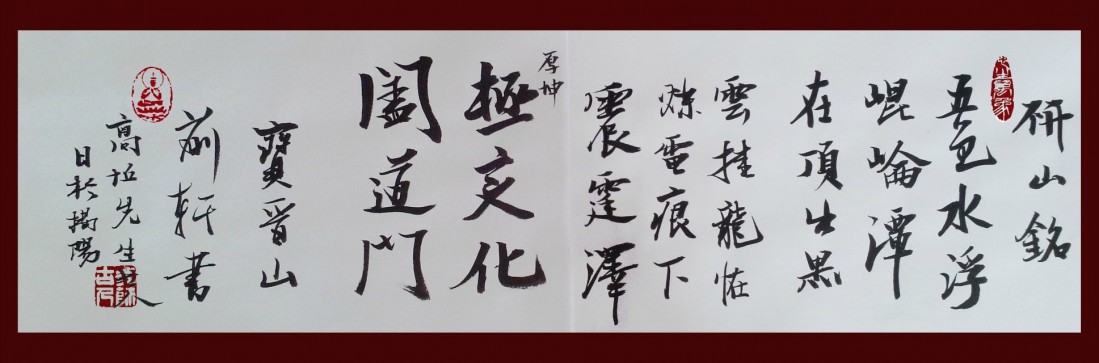 研山銘
五色水浮
崐崘潭
在頂出黑
雲挂龍怪
爍電痕下
震霆澤
厚坤
極变化
闔道門
寶晉山
前軒書
高 先生
日於揭陽